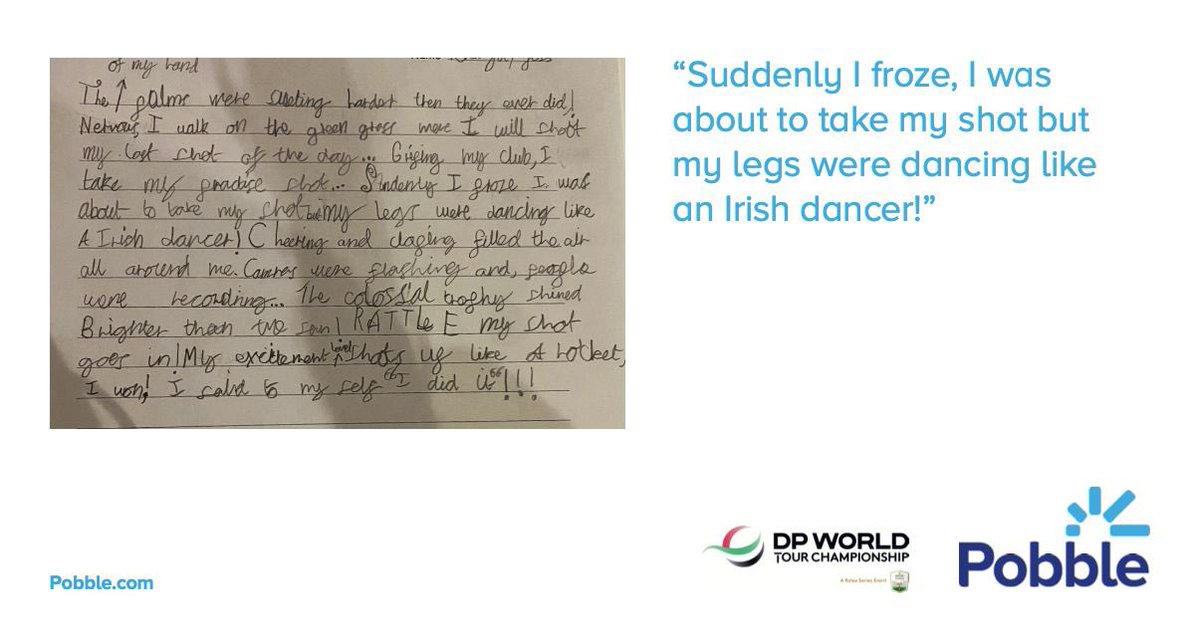 of my hand
The palms were sweting harder then they ever did!
Nervous, I walk on the green grass were I will shoot
my last shot of the day... Griping my club, I
take my practise shot... Sundenly I froze I was
about to take my shot but my legs were dancing like
A Irish dancer! Cheering and claping filled the air
all around me. Camras were flashing and, people
were recordring... The colossal trophy shined
Brighter than the sun! RATTLE my shot
goes in! My excitement levels shots up like A rocket,
I won! I said to my self "I did it"!!!
“Suddenly I froze, I was
about to take my shot but
my legs were dancing like
an Irish dancer!”
DP WORLD
TOUR CHAMPIONSHIP
A Rolex Series Event
Pobble
Pobble.com